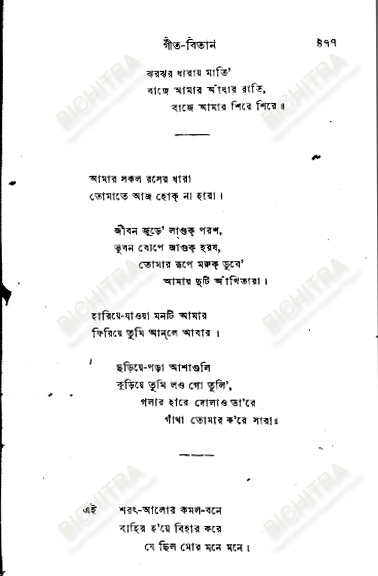 গীত-বিতান ৪৭৭
ঝরঝর ধারায় মাতি'
বাজে আমার আঁধার রাতি,
বাজে আমার শিরে শিরে॥
আমার সকল রসের ধারা
তোমাতে আজ হোক্ না হারা।
জীবন জুড়ে' লাগুক্ পরশ,
ভুবন ব্যেপে জাগুক্ হরষ,
তোমার রূপে মরুক্ ডুবে'
আমার দুটি আঁখিতারা।
হারিয়ে-যাওয়া মনটি আমার
ফিরিয়ে তুমি আন্‌লে আবার।
ছড়িয়ে-পড়া আশাগুলি
কুড়িয়ে তুমি লও গো তুলি',
গলার হারে দোলাও তা'রে
গাঁথা তোমার ক'রে সারা॥
এই শরৎ-আলোর কমল-বনে
বাহির হ'য়ে বিহার করে
যে ছিল মোর মনে মনে।
BICHITRA
BICHITRA
BICHITRA
BICHITRA
BICHITRA
BICHITRA